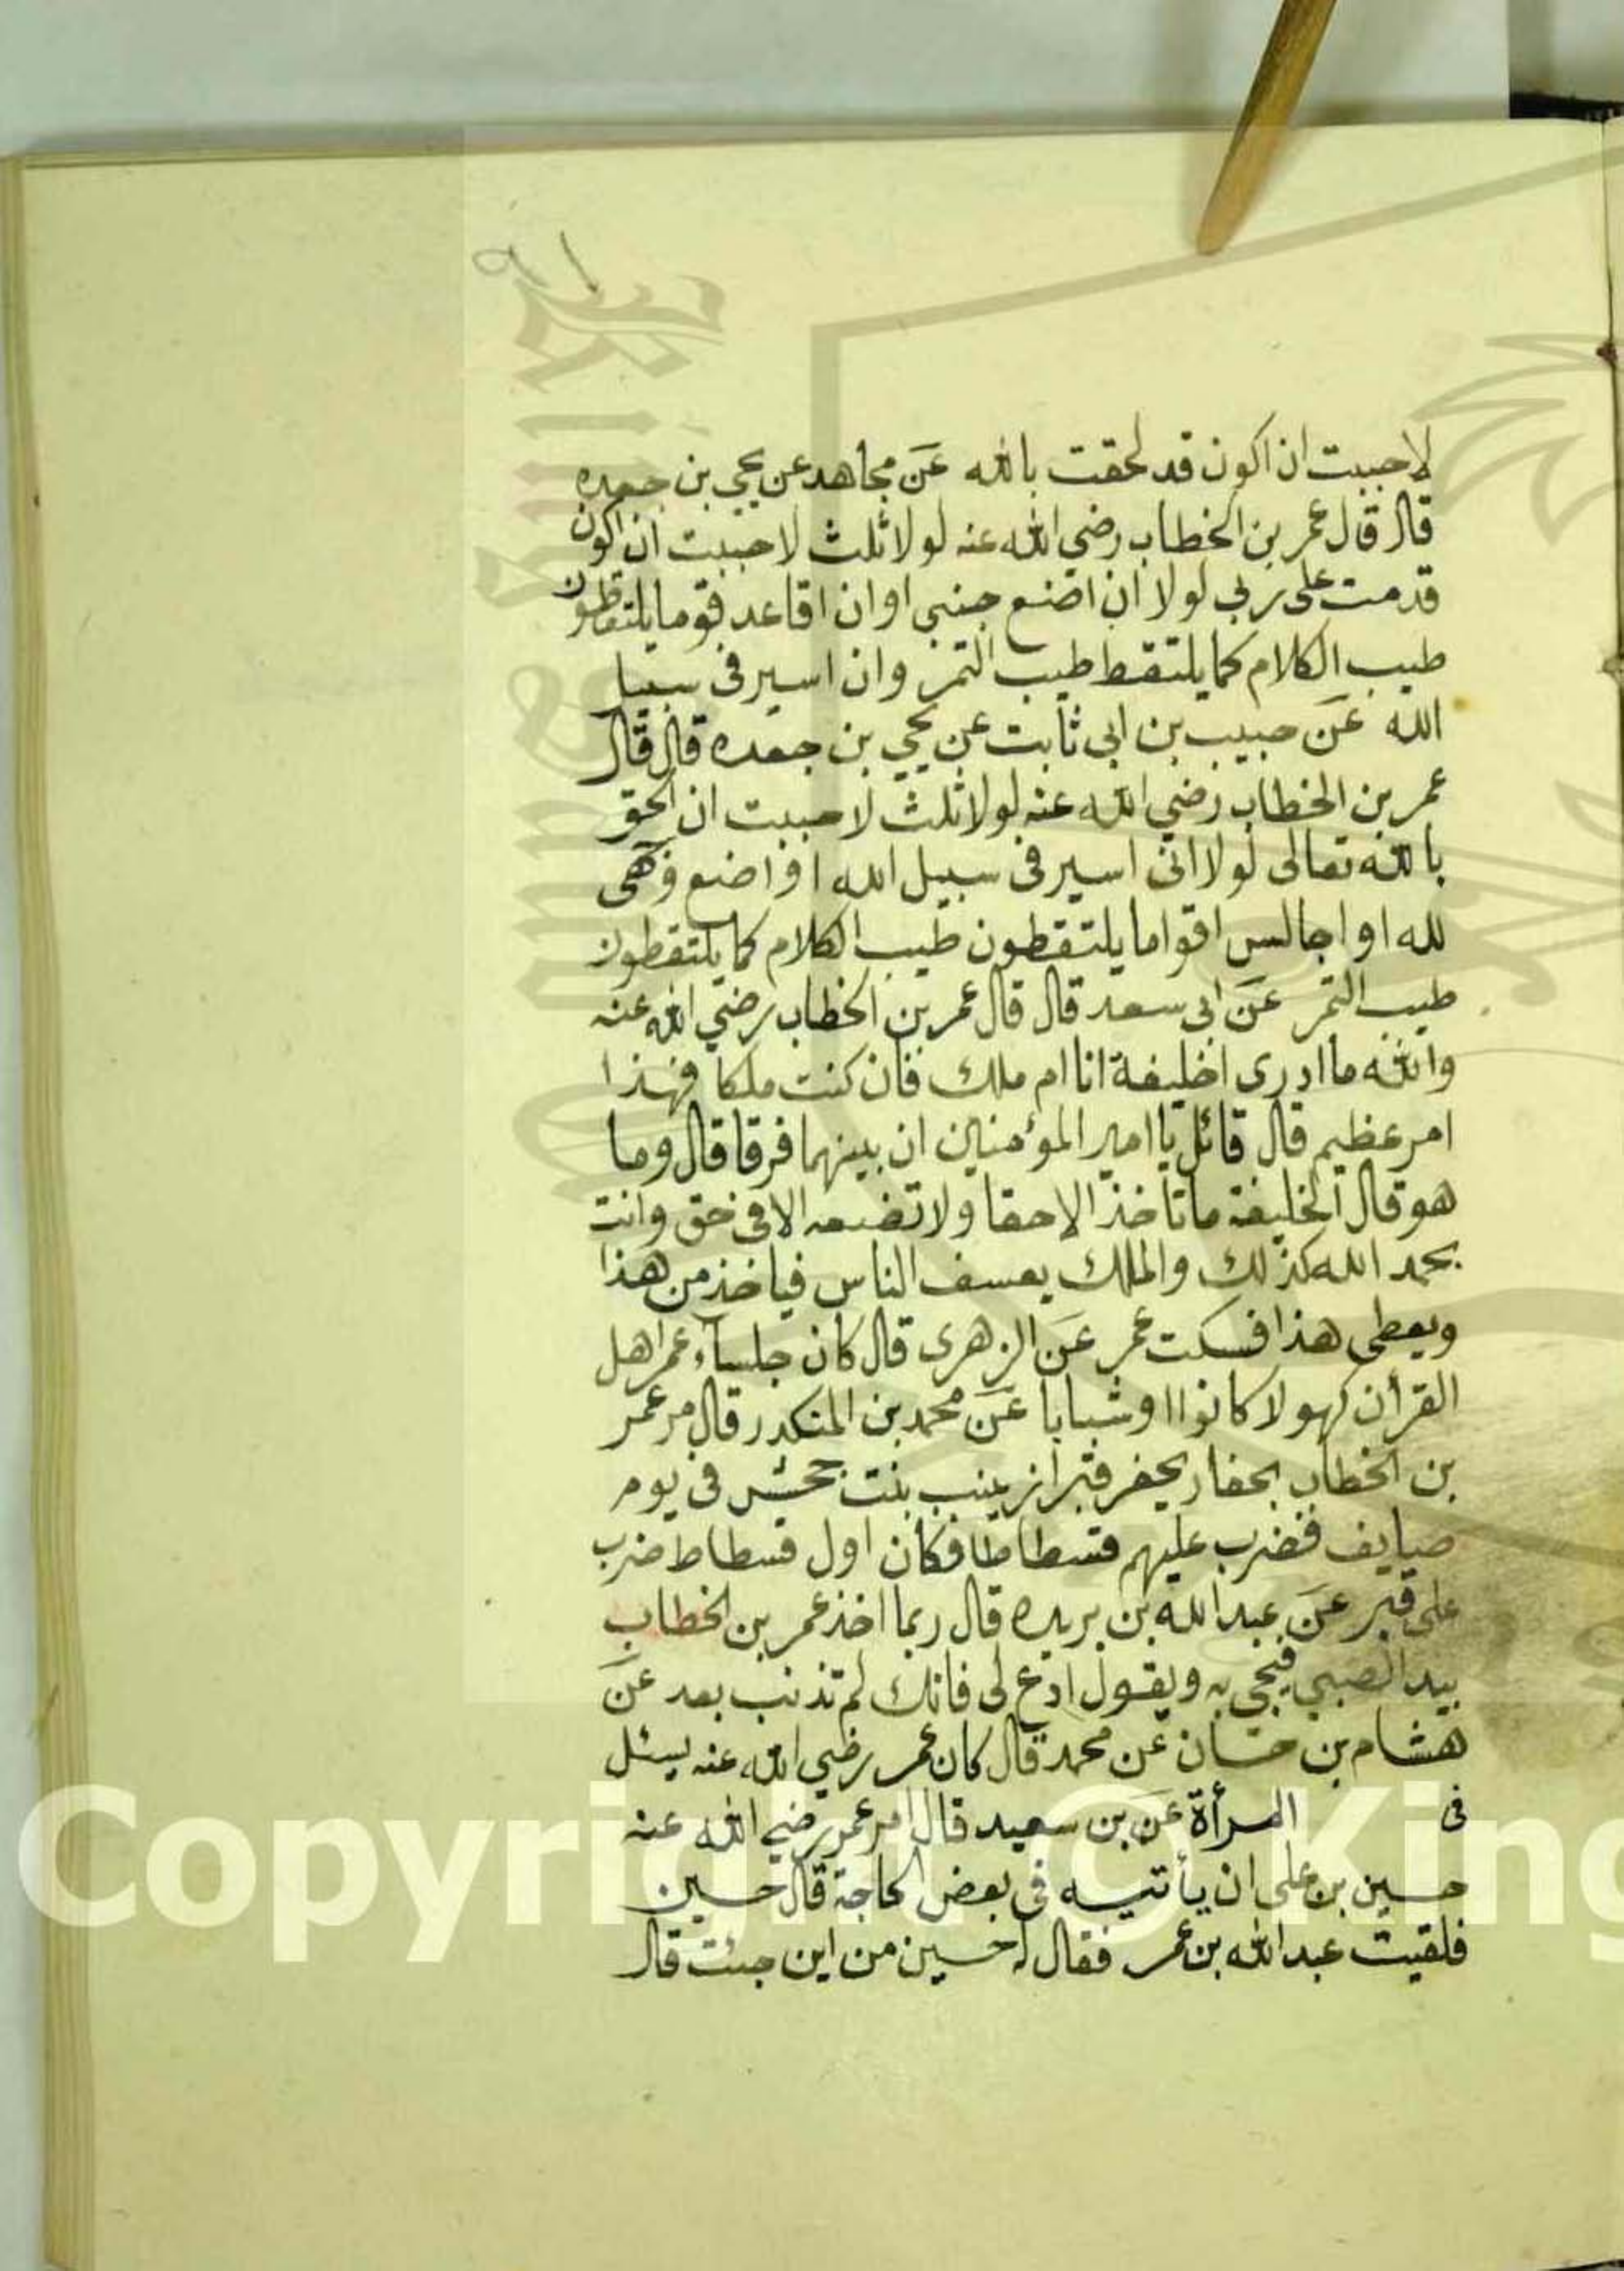 لاحببت ان اكون قد لحقت بالله عن مجاهد عن يحيى بن جعده
قال قال عمر بن الخطاب رضي الله عنه لولا ثلث لاحببت ان اكون
قدمت على ربي لولا ان اضع جنبي او ان اقاعد قوما يلتقطون
طيب الكلام كما يلتقط طيب التمر وان اسير فى سبيل
الله عن حبيب بن ابي ثابت عن يحيي بن جعده قال قال
عمر بن الخطاب رضي الله عنه لولا ثلث لاحببت ان الحق
بالله تعالى لولا انى اسير فى سبيل الله او اضع وجهى
لله او اجالس اقواما يلتقطون طيب الكلام كما يلتقطون
طيب التمر عن ابى سعد قال قال عمر بن الخطاب رضي الله عنه
والله ما ادرى اخليفة انا ام ملك فان كنت ملكا فهذا
امر عظيم قال قائل يا امير المؤمنين ان بينهما فرقا قال وما
هو قال الخليفة ما تاخذ الا حقا ولا تضعه الا فى حق وانت
بحمد الله كذلك والملك يعسف الناس فياخذ من هذا
ويعطى هذا فسكت عمر عن الزهرى قال كان جلسآء عمر اهل
القرأن كهولا كانوا او شبابا عن محمد بن المنكدر قال مر عمر
بن الخطاب بحفار يحفر قبرا زينب بنت جحش فى يوم
صايف فضرب عليهم فسطاطا فكان اول فسطاط ضرب
على قبر عن عبد الله بن بريده قال ربما اخذ عمر بن الخطاب
بيد الصبي فيجى به ويقول ادع لى فانك لم تذنب بعد عن
هشام بن حسان عن محمد قال كان عمر رضي الله عنه يسئل
فى المرأة عن بن سعيد قال امر عمر رضي الله عنه
حسين بن على ان يأتيه فى بعض الحاجة قال حسين
فلقيت عبد الله بن عمر فقال له حسين من اين جئت قال
Copyright © King